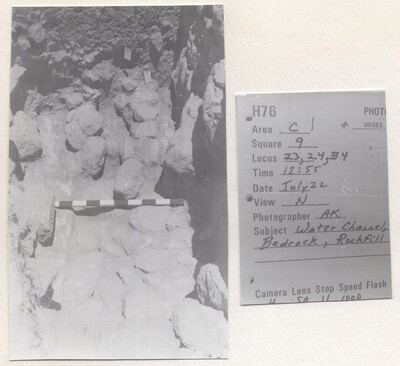 H76 PHOT
Area C 1 #
Square 9
Locus 23, 24, 34
Time 12:55
Date July 22
View N
Photographer AK
Subject Water Channel,
Bedrock, Rockfill
Camera Lens Stop Speed Flash